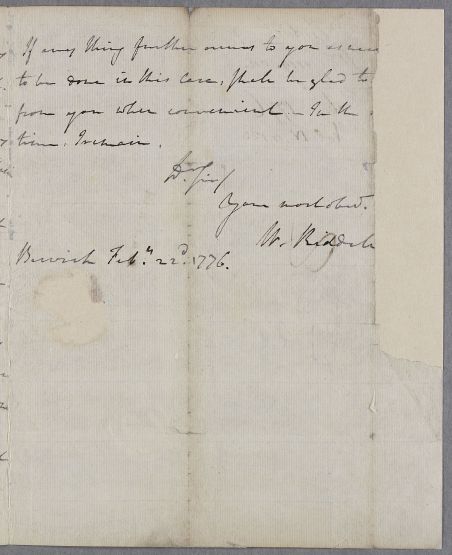 If any thing further occurs to you
to be done in this Case, shall be glad to
from you when convenient – In the
time, I remain.
Dr. Sir
Your most obedt.
W. Riddell
Berwick Feby. 22d. 1776.